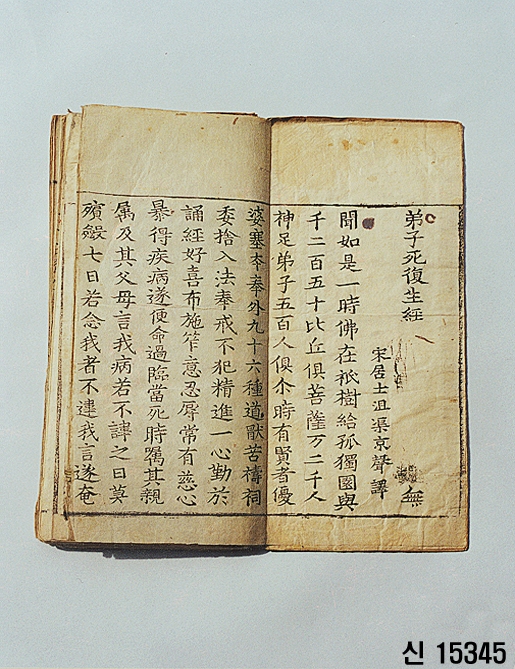 弟子死復生經 無
宋居士沮渠京聲譯
聞如是一時佛在祇樹給孤獨園與
千二百五十比丘俱菩薩万二千人
神足弟子五百人俱尒時有賢者優
婆塞夲奉外九十六種道猒苦禱祠
委捨入法奉戒不犯精進一心勤於
誦經好喜布施笮意忍辱常有慈心
暴得疾病遂便命過臨當死時囑其親
属及其父母言我病若不諱之日莫
殯殮七日若念我者不違我言遂奄
신 15345